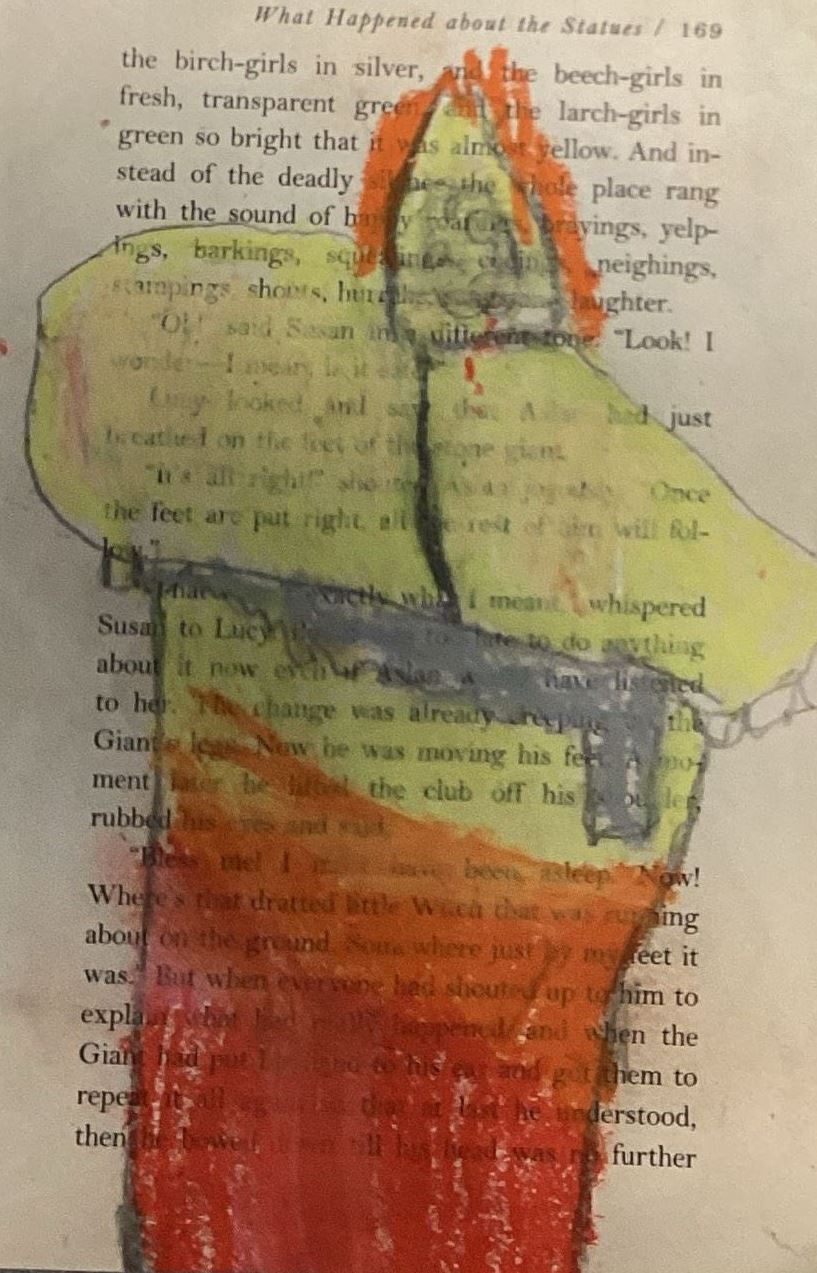 What Happened about the Statues / 169
the birch-girls in silver, and the beech-girls in
fresh, transparent green and the larch-girls in
green so bright that it was almost yellow. And in-
stead of the deadly silence the whole place rang
with the sound of happy roarings, brayings, yelp-
ings, barkings, squealings, cooings, neighings,
stampings, shouts, hurrahs, songs and laughter.
"Oh!" said Susan in a different tone. "Look! I
wonder—I mean, is it safe?"
Lucy looked and saw that Aslan had just
breathed on the feet of the stone giant.
"It's all right!" shouted Aslan joyously. "Once
the feet are put right, all the rest of him will fol-
low."
exactly what I meant," whispered
Susan to Lucy. to do anything
about it now even if Aslan have listened
to her. The change was already creeping the
Giant's legs. Now he was moving his feet. A mo-
ment later he lifted the club off his shoulder,
rubbed his eyes and said,
"Bless me! I must have been asleep. Now!
Where's that dratted little Witch that was running
about on the ground. Somewhere just by my feet it
was." But when everyone had shouted up to him to
explain what had really happened, and when the
Giant had put his hand to his ear and got them to
repeat it all again so that at last he understood,
then he bowed down till his head was no further